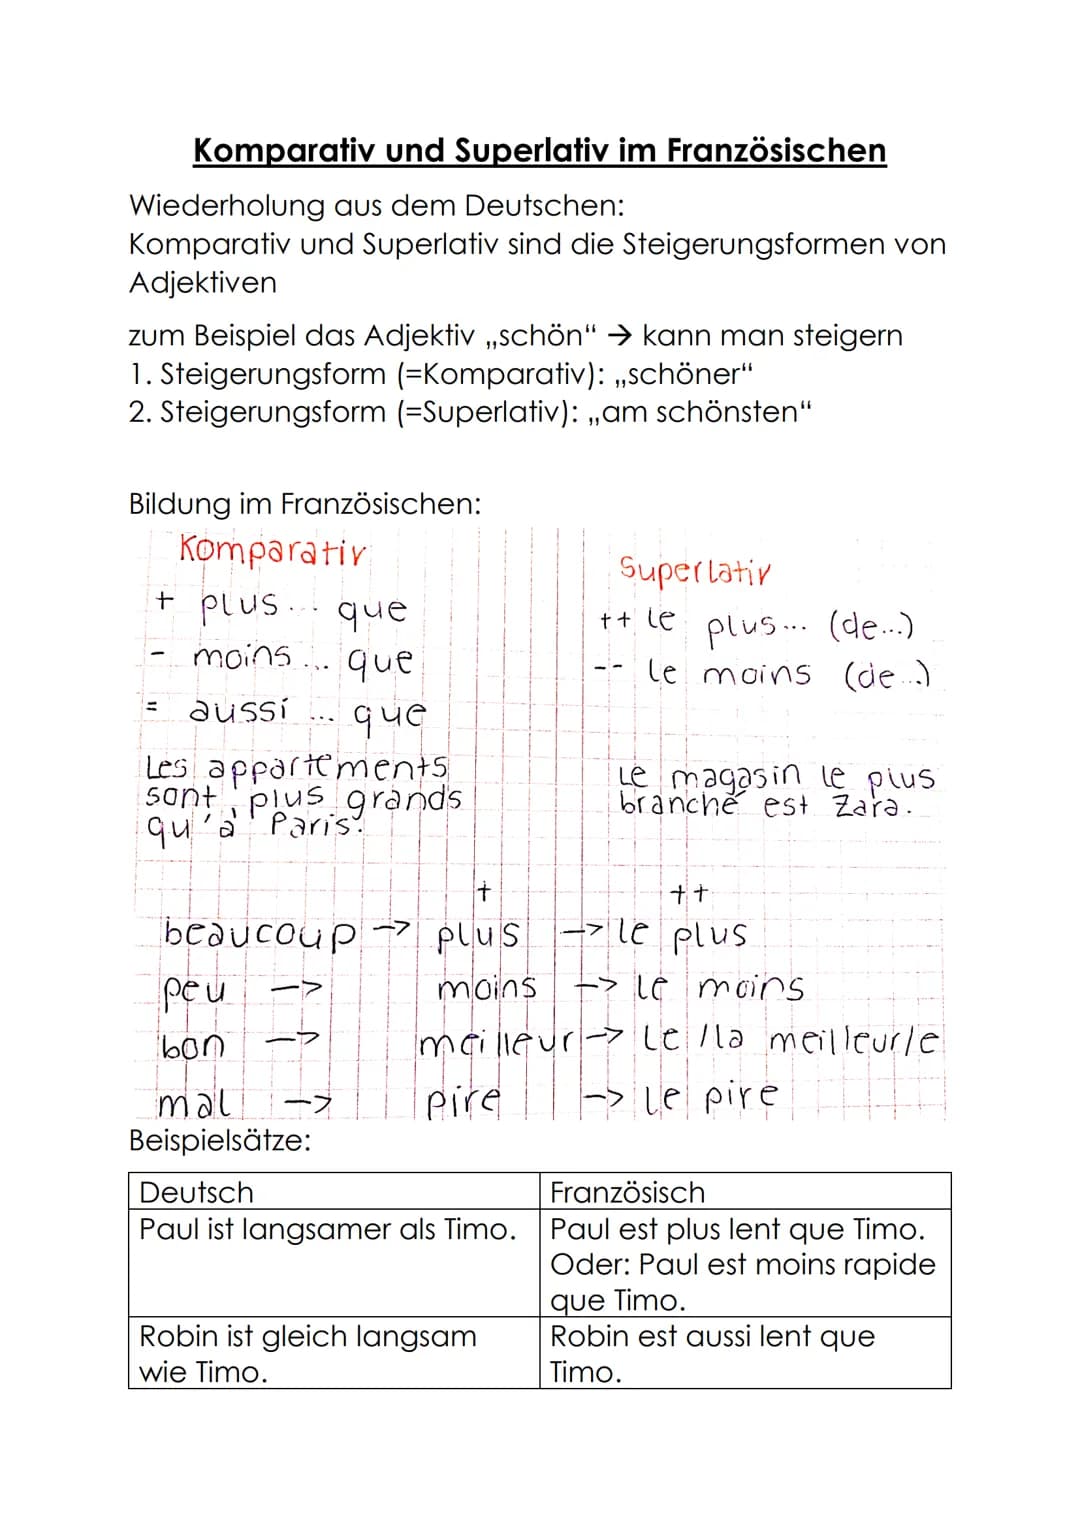 Komparativ und Superlativ im Französischen
Wiederholung aus dem Deutschen:
Komparativ und Superlativ sind die Steigerungsformen von
Adjektiven
zum Beispiel das Adjektiv „schön“ → kann man steigern
1. Steigerungsform (=Komparativ): „schöner“
2. Steigerungsform (=Superlativ): „am schönsten“
Bildung im Französischen:
Komparativ
+ plus... que
- moins... que
= aussi ... que
Les appartements
sont plus grands
qu'à Paris.
Superlativ
++ le plus... (de...)
-- le moins (de...)
Le magasin le plus
branché est Zara.
+ ++
beaucoup -> plus -> le plus
peu -> moins -> le moins
bon -> meilleur -> le/la meilleur/e
mal -> pire -> le pire
Beispielsätze:
Deutsch
Französisch
Paul ist langsamer als Timo.
Paul est plus lent que Timo.
Oder: Paul est moins rapide
que Timo.
Robin ist gleich langsam
wie Timo.
Robin est aussi lent que
Timo.